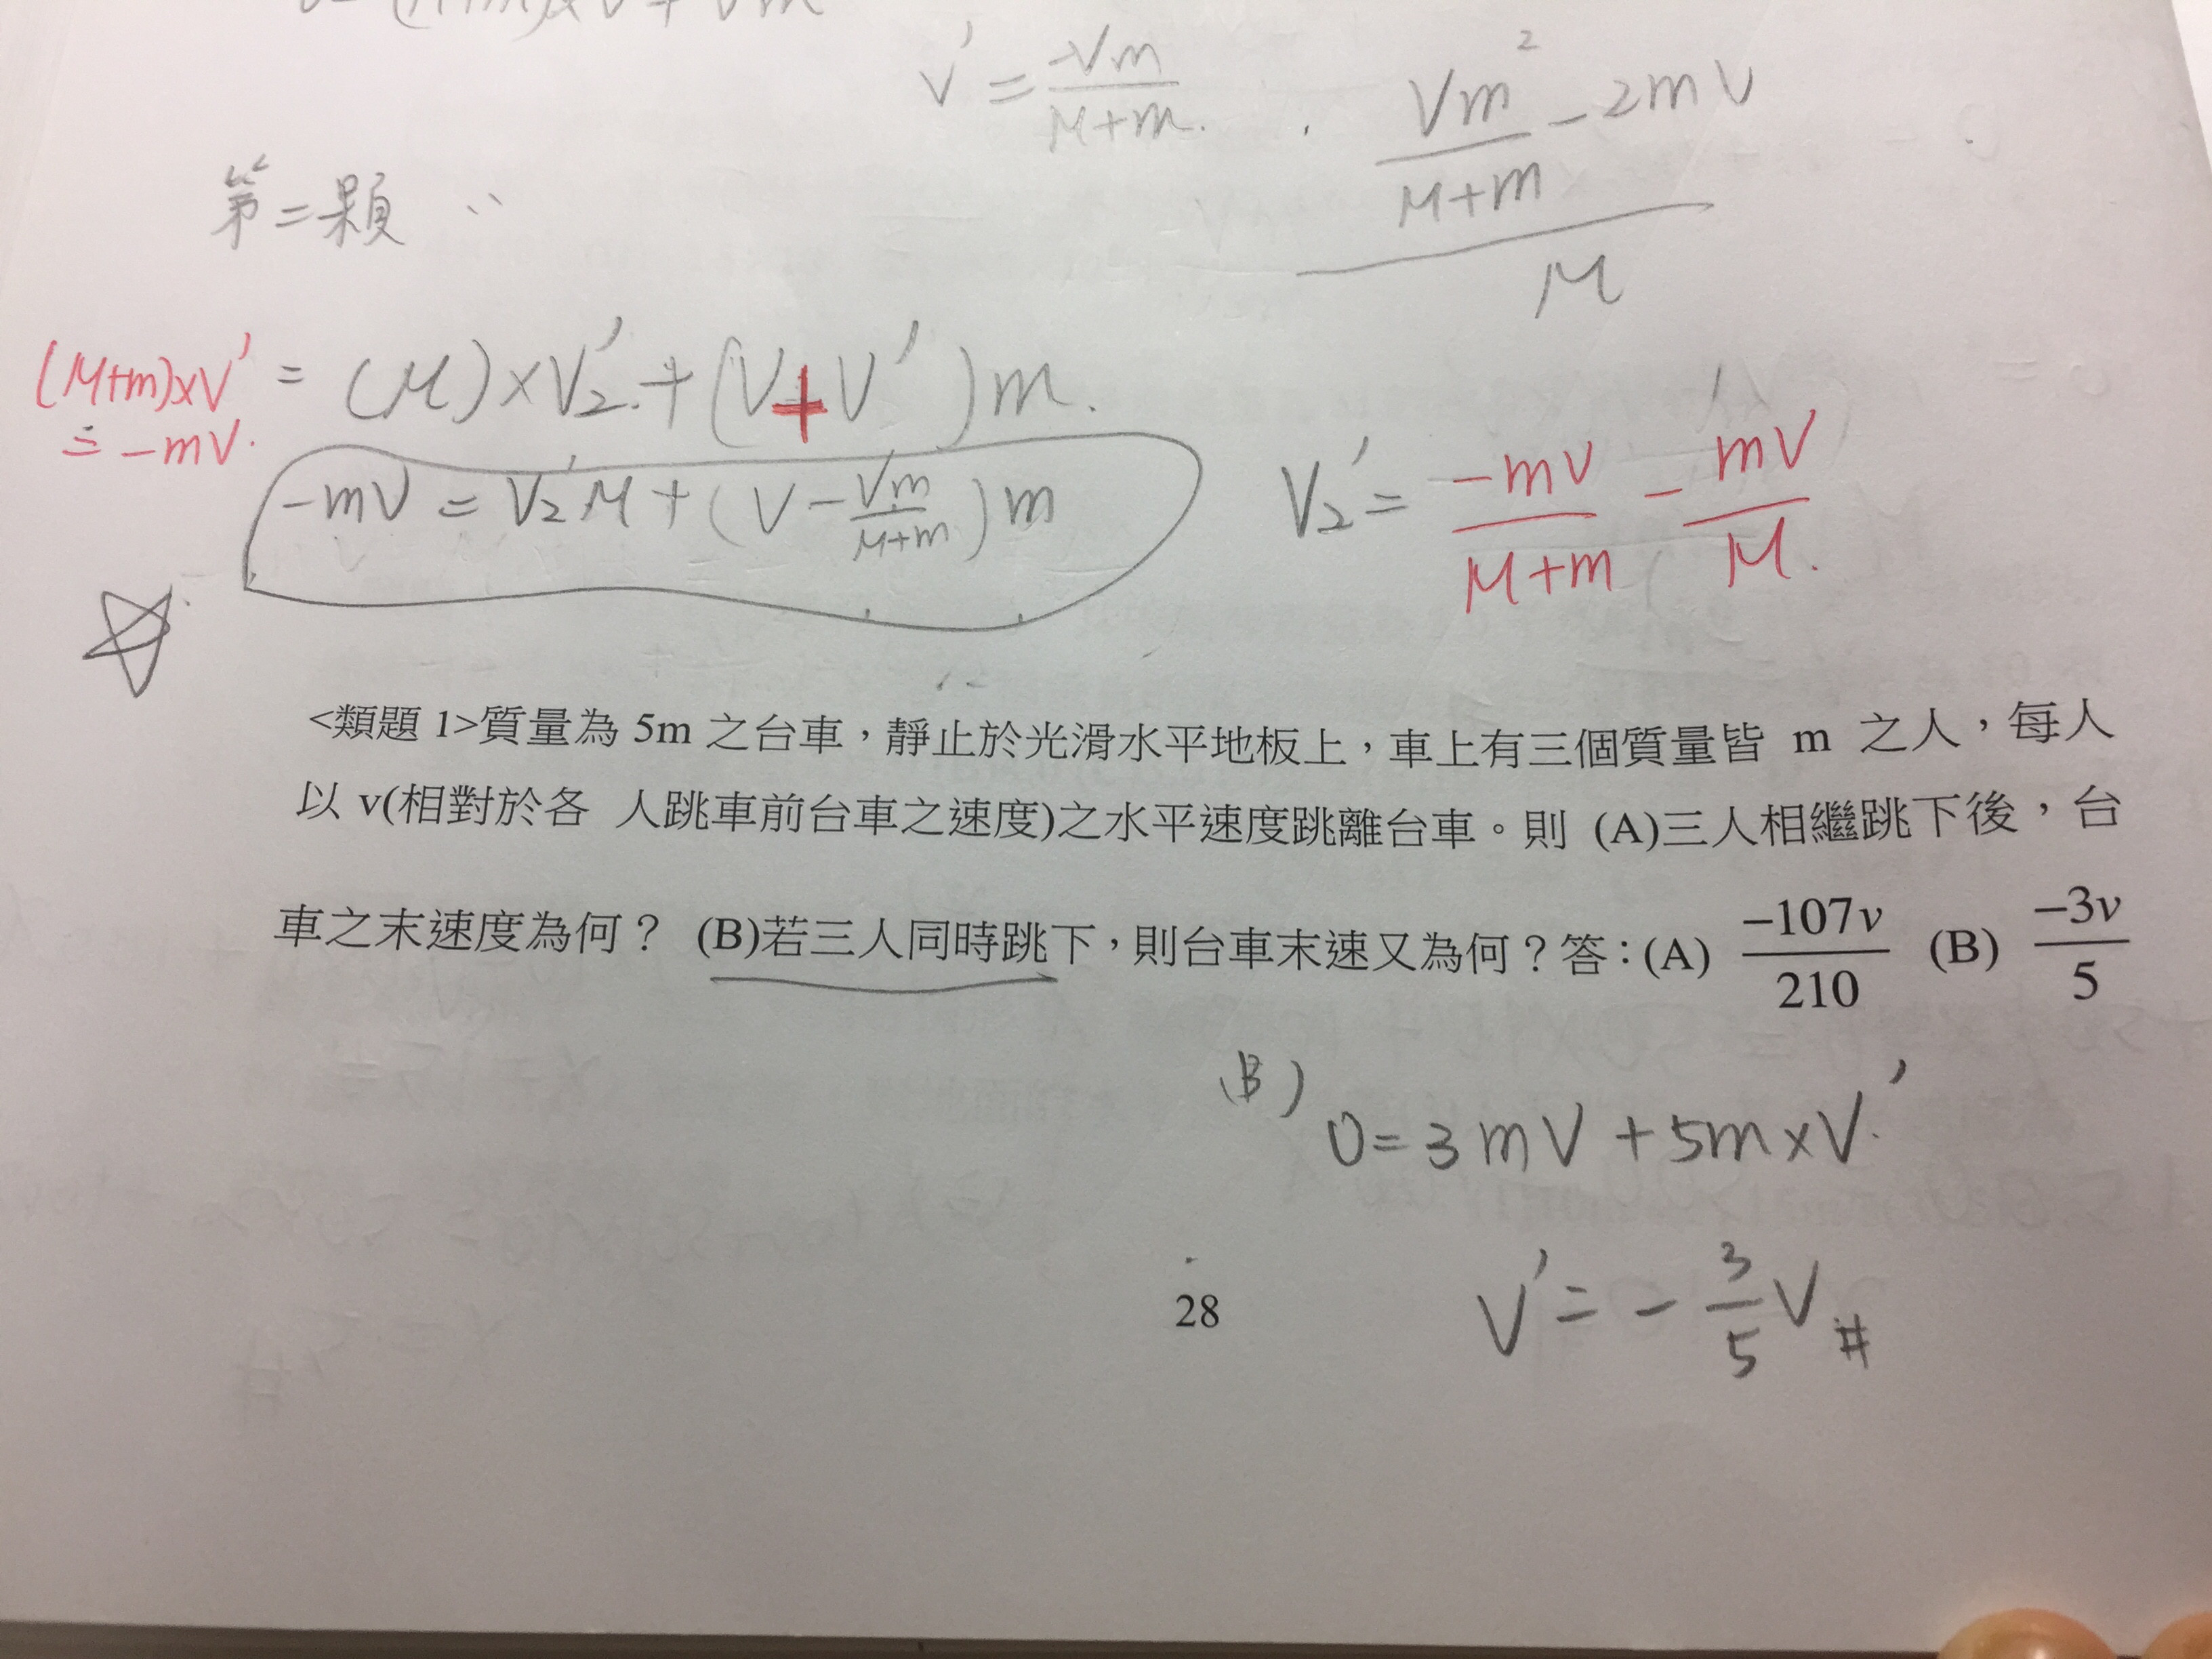 V' = -Vm / M+m.
Vm² / M+m - 2mV / M
第二顆 :
(M+m)×V' = (M)×V₂' + (V+V')m.
= -mV.
-mV = V₂'M + (V - Vm / M+m)m
V₂' = -mV / M+m - mV / M.
<類題 1>質量為 5m 之台車，靜止於光滑水平地板上，車上有三個質量皆 m 之人，每人
以 v(相對於各 人跳車前台車之速度)之水平速度跳離台車。則 (A)三人相繼跳下後，台
車之末速度為何？ (B)若三人同時跳下，則台車末速又為何？答：(A) -107v / 210 (B) -3v / 5
(B)
0 = 3mV + 5m×V'
V' = - 3/5 V #
28